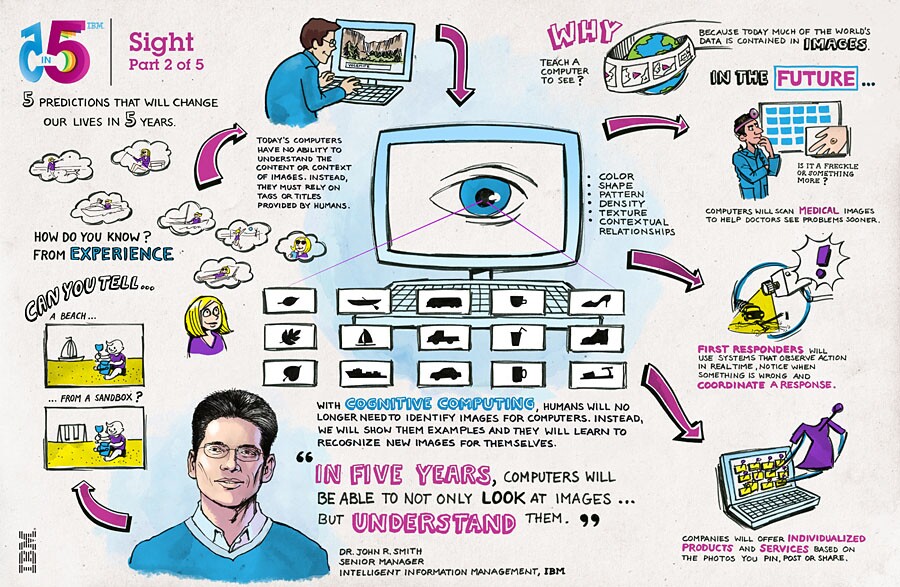 5 IN 5
IBM
Sight
Part 2 of 5
5 PREDICTIONS THAT WILL CHANGE
OUR LIVES IN 5 YEARS.
HOW DO YOU KNOW?
FROM EXPERIENCE
CAN YOU TELL...
A BEACH...
...FROM A SANDBOX?
YOSEMITE
TODAY'S COMPUTERS
HAVE NO ABILITY TO
UNDERSTAND THE
CONTENT OR CONTEXT
OF IMAGES. INSTEAD,
THEY MUST RELY ON
TAGS OR TITLES
PROVIDED BY HUMANS.
• COLOR
• SHAPE
• PATTERN
• DENSITY
• TEXTURE
• CONTEXTUAL
RELATIONSHIPS
WITH COGNITIVE COMPUTING, HUMANS WILL NO
LONGER NEED TO IDENTIFY IMAGES FOR COMPUTERS. INSTEAD,
WE WILL SHOW THEM EXAMPLES AND THEY WILL LEARN TO
RECOGNIZE NEW IMAGES FOR THEMSELVES.
“IN FIVE YEARS, COMPUTERS WILL
BE ABLE TO NOT ONLY LOOK AT IMAGES ...
BUT UNDERSTAND THEM.”
DR. JOHN R. SMITH
SENIOR MANAGER
INTELLIGENT INFORMATION MANAGEMENT, IBM
WHY
TEACH A
COMPUTER
TO SEE?
BECAUSE TODAY MUCH OF THE WORLD'S
DATA IS CONTAINED IN IMAGES.
IN THE FUTURE...
IS IT A FRECKLE
OR SOMETHING
MORE?
COMPUTERS WILL SCAN MEDICAL IMAGES
TO HELP DOCTORS SEE PROBLEMS SOONER.
!
FIRST RESPONDERS WILL
USE SYSTEMS THAT OBSERVE ACTION
IN REALTIME, NOTICE WHEN
SOMETHING IS WRONG AND
COORDINATE A RESPONSE.
COMPANIES WILL OFFER INDIVIDUALIZED
PRODUCTS AND SERVICES BASED ON
THE PHOTOS YOU PIN, POST OR SHARE.
IBM